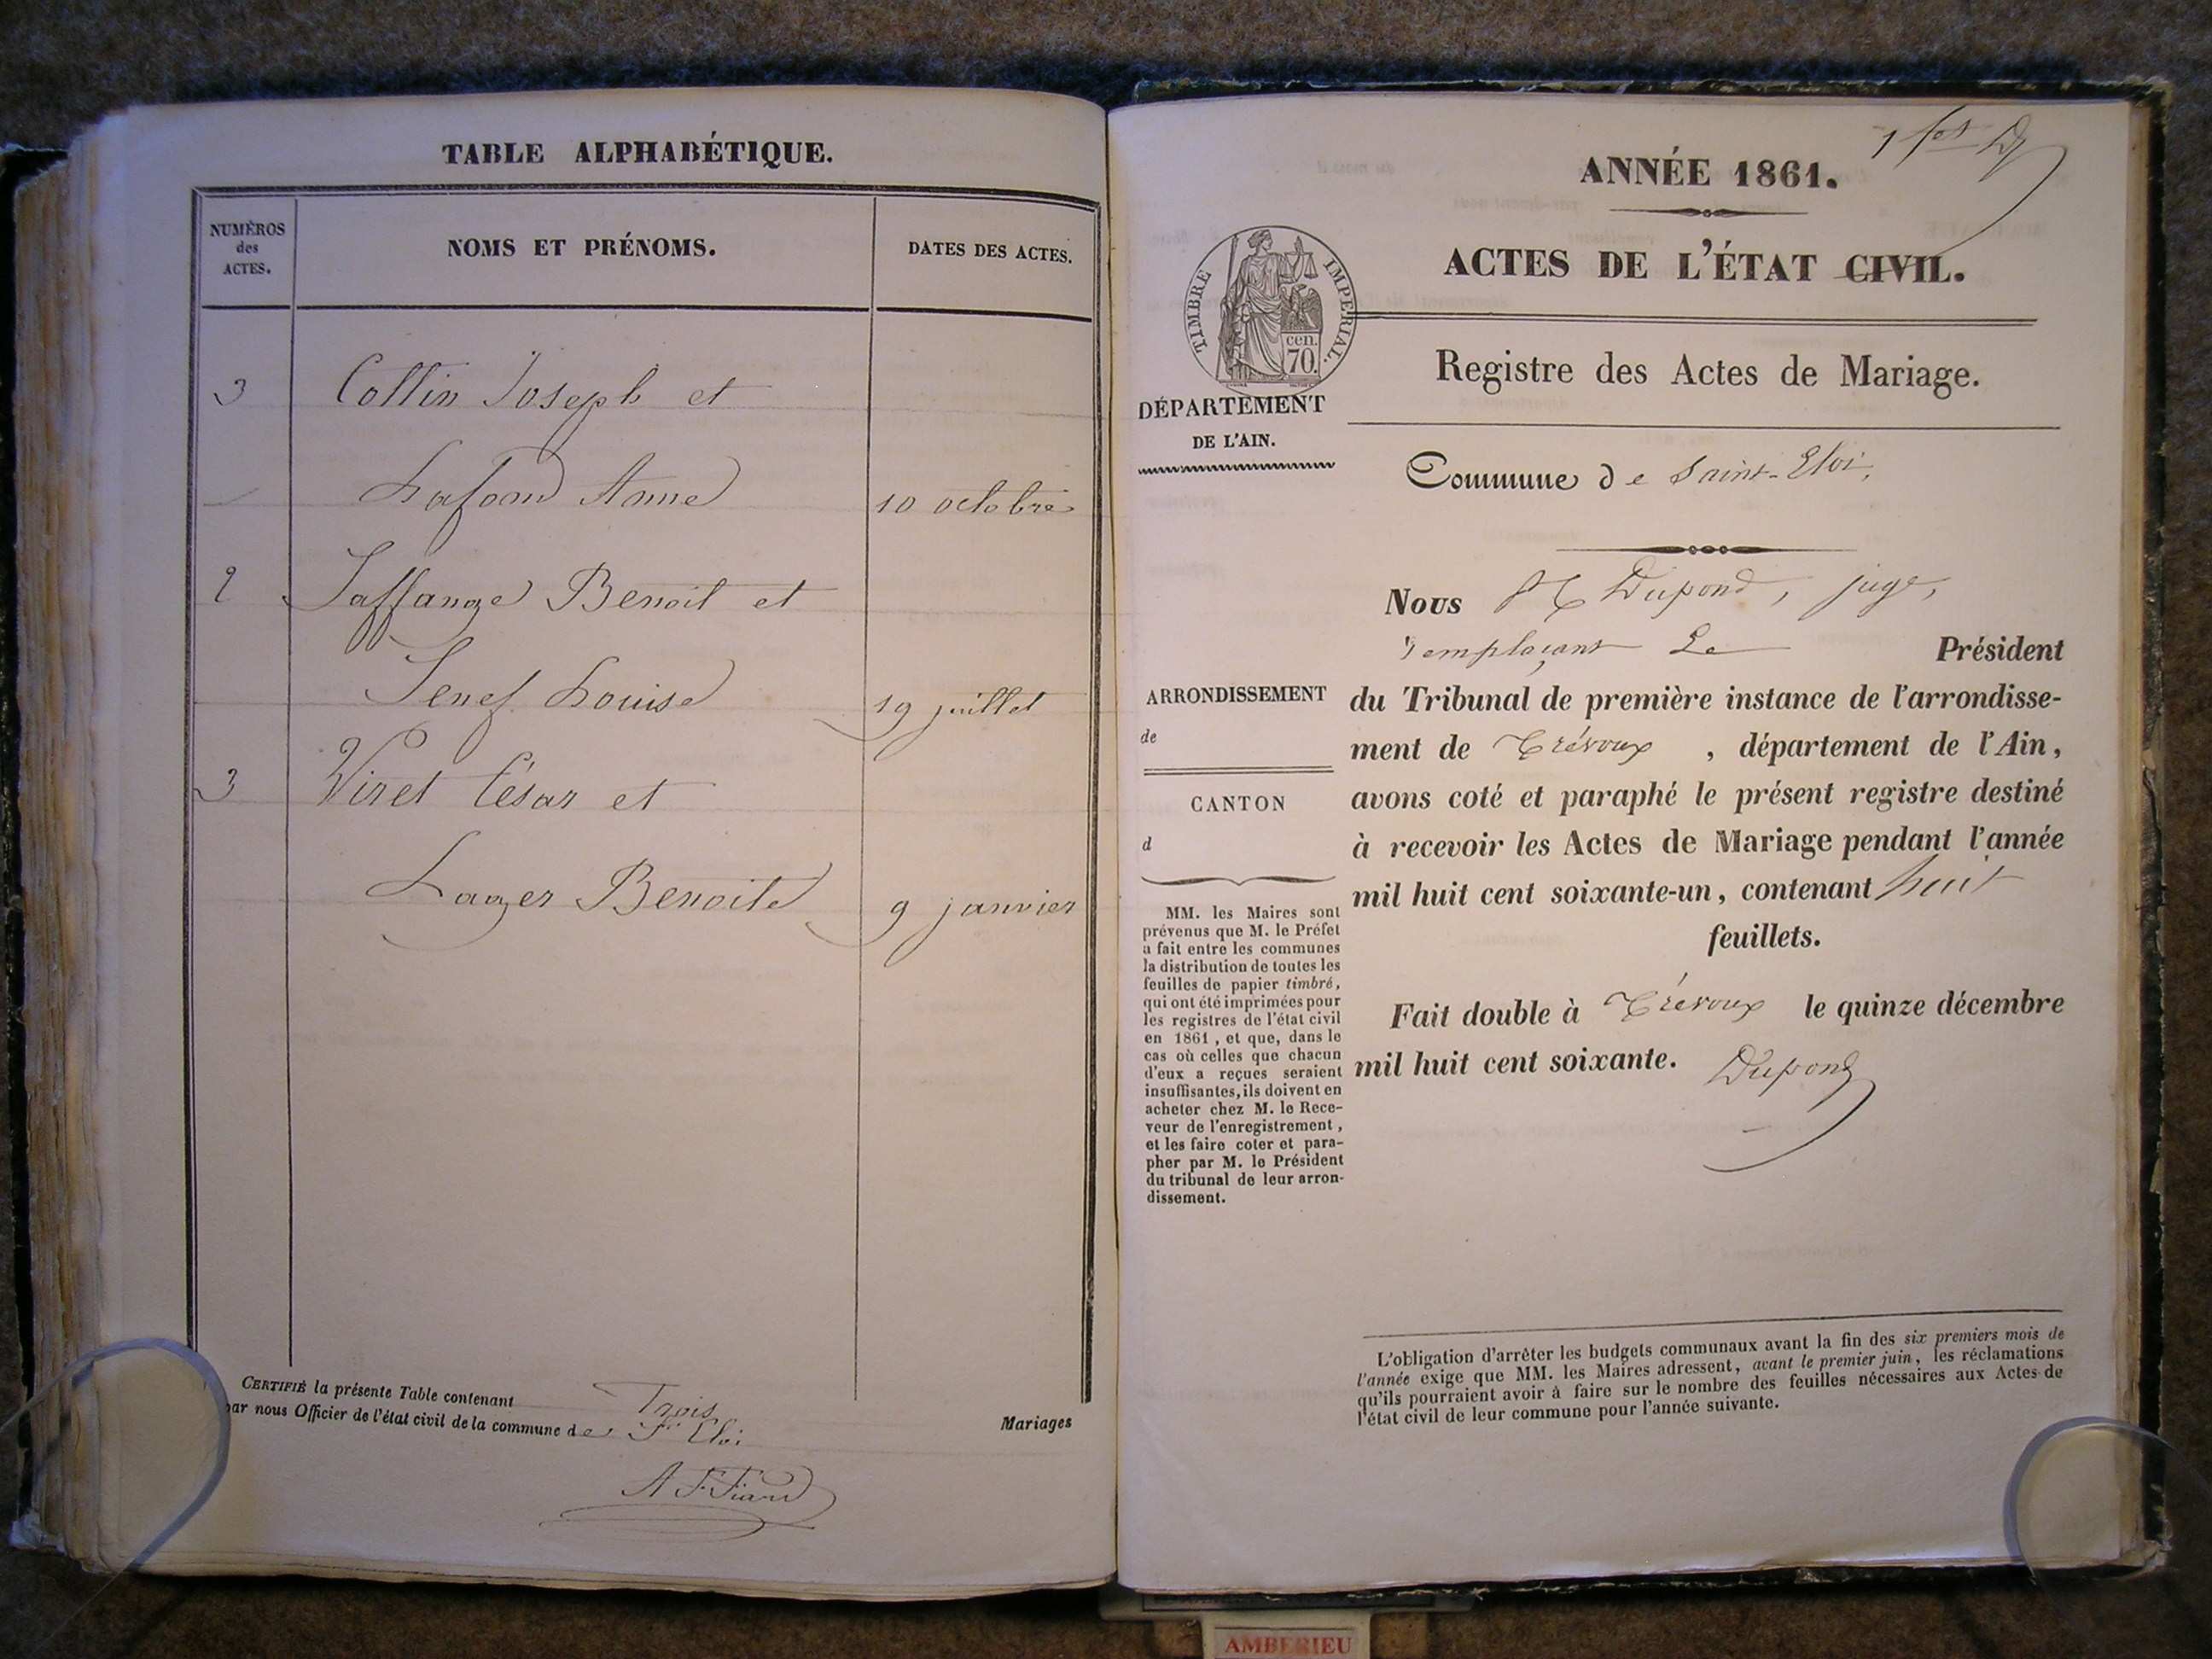 TABLE ALPHABÉTIQUE.
NUMÉROS
des
ACTES.
NOMS ET PRÉNOMS.
DATES DES ACTES.
3 Collin Joseph et
Lafond Anne 10 octobre
2 Jaffange Benoit et
Jenef Louise 19 juillet
3 Viret César et
Lager Benoite 9 janvier
CERTIFIÉ la présente Table contenant Trois Mariages
par nous Officier de l'état civil de la commune de St Eloi
ANNÉE 1861.
ACTES DE L'ÉTAT CIVIL.
TIMBRE IMPERIAL.
cen.
70.
Registre des Actes de Mariage.
DÉPARTEMENT
DE L'AIN.
Commune de Saint-Eloi,
Nous Dupond, juge,
remplaçant Le Président
du Tribunal de première instance de l'arrondisse-
ment de Trévoux, département de l'Ain,
avons coté et paraphé le présent registre destiné
à recevoir les Actes de Mariage pendant l'année
mil huit cent soixante-un, contenant huit
feuillets.
Fait double à Trévoux le quinze décembre
mil huit cent soixante. Dupond
ARRONDISSEMENT
de
CANTON
d
MM. les Maires sont
prévenus que M. le Préfet
a fait entre les communes
la distribution de toutes les
feuilles de papier timbré,
qui ont été imprimées pour
les registres de l'état civil
en 1861, et que, dans le
cas où celles que chacun
d'eux a reçues seraient
insuffisantes, ils doivent en
acheter chez M. le Rece-
veur de l'enregistrement,
et les faire coter et para-
pher par M. le Président
du tribunal de leur arron-
dissement.
L'obligation d'arrêter les budgets communaux avant la fin des six premiers mois de
l'année exige que MM. les Maires adressent, avant le premier juin, les réclamations
qu'ils pourraient avoir à faire sur le nombre des feuilles nécessaires aux Actes de
l'état civil de leur commune pour l'année suivante.
AMBERIEU